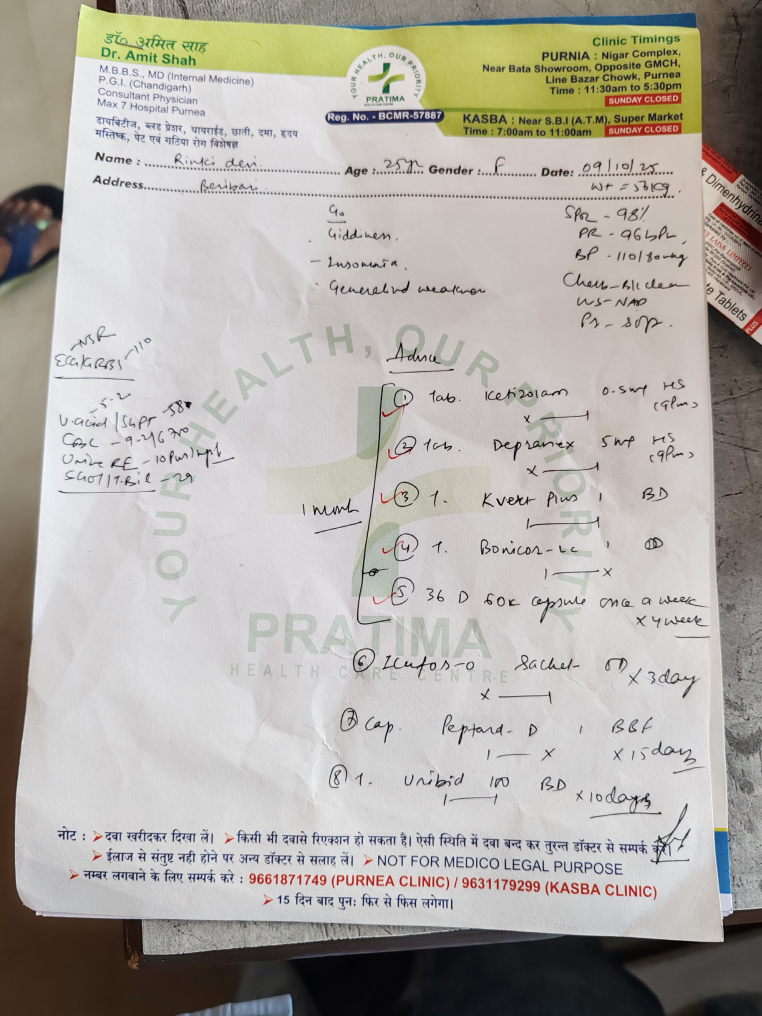 डॉ० अमित साह
Dr. Amit Shah
M.B.B.S., MD (Internal Medicine)
P.G.I. (Chandigarh)
Consultant Physician
Max 7 Hospital Purnea
डायबिटीज, ब्लड प्रेशर, थायराईड, छाती, दमा, हृदय
मस्तिष्क, पेट एवं गठिया रोग विशेषज्ञ
YOUR HEALTH, OUR PRIORITY
PRATIMA
HEALTH CARE CENTRE
Reg. No. - BCMR-57887
Clinic Timings
PURNIA : Nigar Complex,
Near Bata Showroom, Opposite GMCH,
Line Bazar Chowk, Purnea
Time : 11:30am to 5:30pm
SUNDAY CLOSED
KASBA : Near S.B.I (A.T.M), Super Market
Time : 7:00am to 11:00am SUNDAY CLOSED
Name : Rinki devi Age : 25yr Gender : F Date: 09/10/25
Address Wt = 56kg
C/o
Giddiness.
- Insomnia.
Generalised weakness
SPO2 - 98%
PR - 96 bpm
BP - 110/80mmHg
Chest - B/L clear
CVS - NAD
P/A - soft.
NSR
ECG/GRBS - 110
5.2
U.acid / SGPT - 58
CBC - 9.2/6700
Urine RE - 10 Pus/hpf
SGOT/T.Bil - 29
Advice
1 Month
① Tab. Ketizolam 0.5mg HS
(9Pm)
② Tab. Depranex 5mg HS
(9Pm)
③ T. Plus 1 BD
④ T. Bonicor-LC 1 OD
⑤ D 60K capsule once a week
× 4 week
⑥ Sachet OD × 3 day
⑦ Cap. Peptard-D 1 BBF
× 15 days
⑧ T. Unibid 100 BD
× 10 days
YOUR HEALTH, OUR PRIORITY
PRATIMA
HEALTH CARE CENTRE
नोट : दवा खरीदकर दिखा लें। किसी भी दवासे रिएक्शन हो सकता है। ऐसी स्थिति में दवा बन्द कर तुरन्त डॉक्टर से सम्पर्क करें।
ईलाज से संतुष्ट नही होने पर अन्य डॉक्टर से सलाह लें। NOT FOR MEDICO LEGAL PURPOSE
नम्बर लगवाने के लिए सम्पर्क करे : 9661871749 (PURNEA CLINIC) / 9631179299 (KASBA CLINIC)
15 दिन बाद पुनः फिर से फिस लगेगा।
Dimenhydrinate
LABS LIMITED
Tablets
PLUS